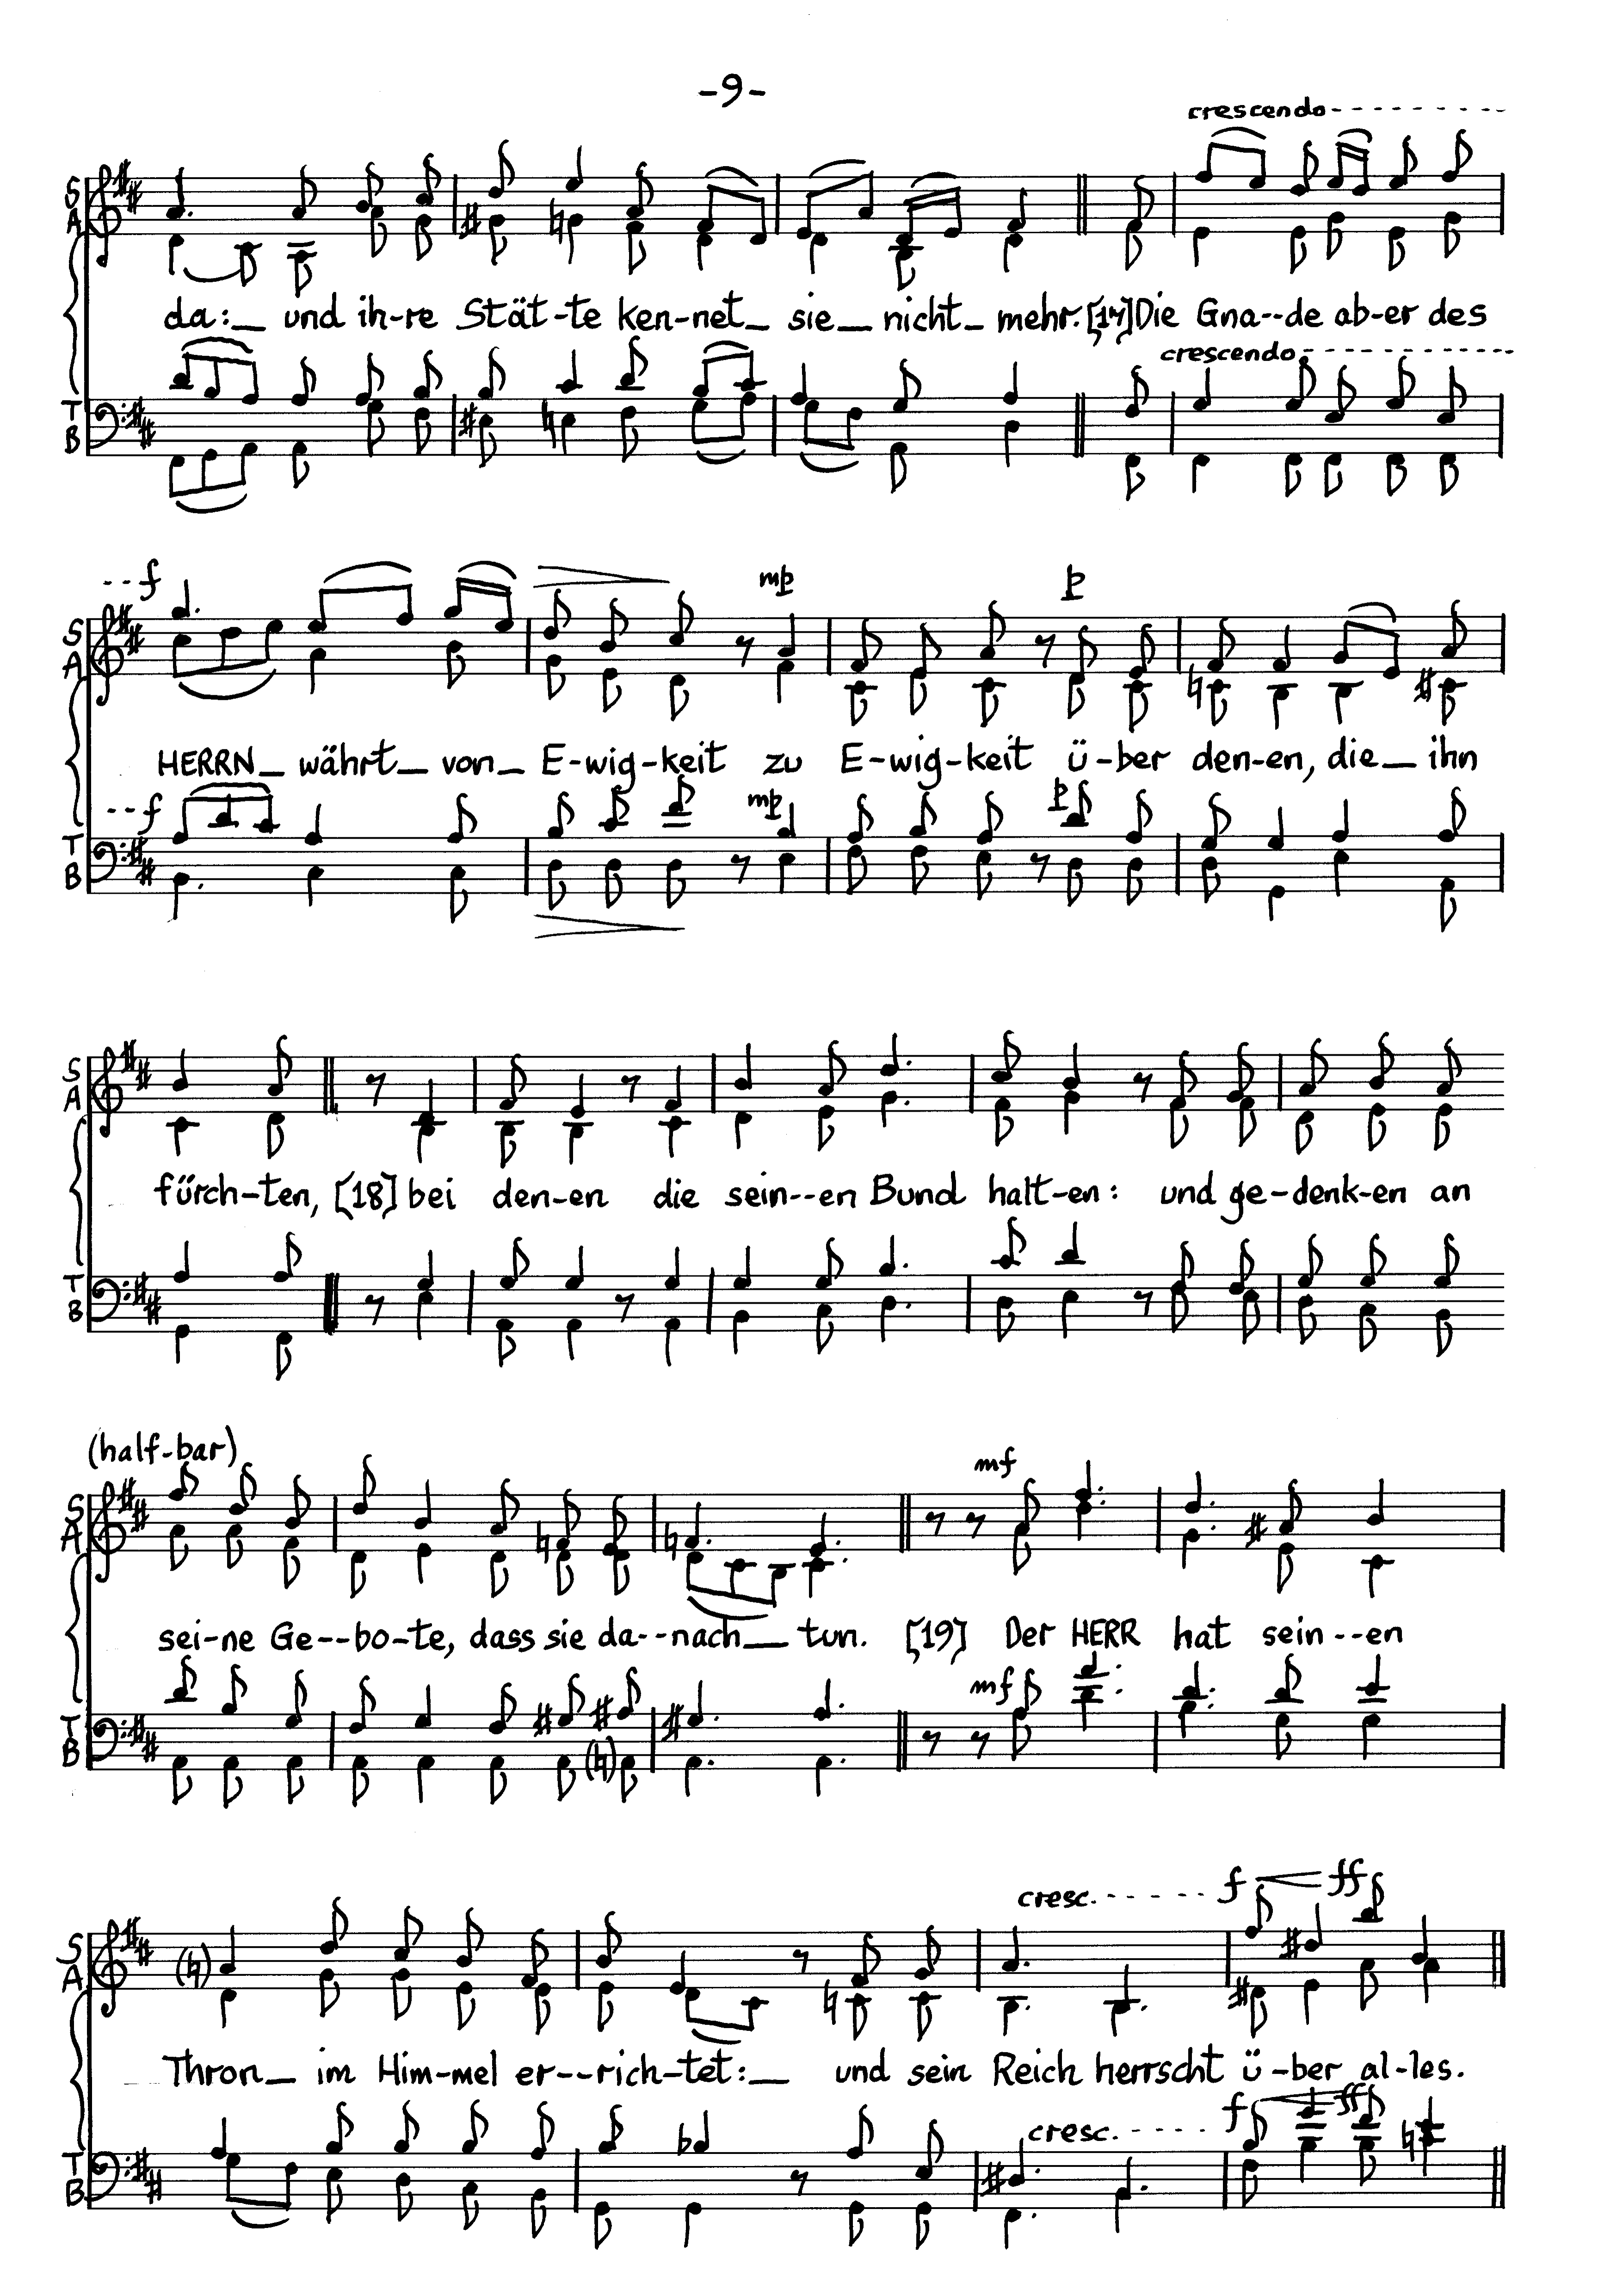 -9-
crescendo
S
A
da: und ih-re Stät-te ken-net_ sie_ nicht_ mehr. [17] Die Gna--de ab-er des
crescendo
T
B
f
mp
p
S
A
HERRN_ währt_ von_ E-wig-keit zu E-wig-keit ü-ber den-en, die_ ihn
f
mp
p
T
B
S
A
fürch-ten, [18] bei den-en die sein--en Bund halt-en: und ge-denk-en an
T
B
(half-bar)
mf
S
A
sei-ne Ge--bo-te, dass sie da--nach_ tun. [19] Der HERR hat sein--en
mf
T
B
cresc. f ff
S
A
Thron_ im Him-mel er--rich-tet:_ und sein Reich herrscht ü-ber al-les.
cresc. f ff
T
B